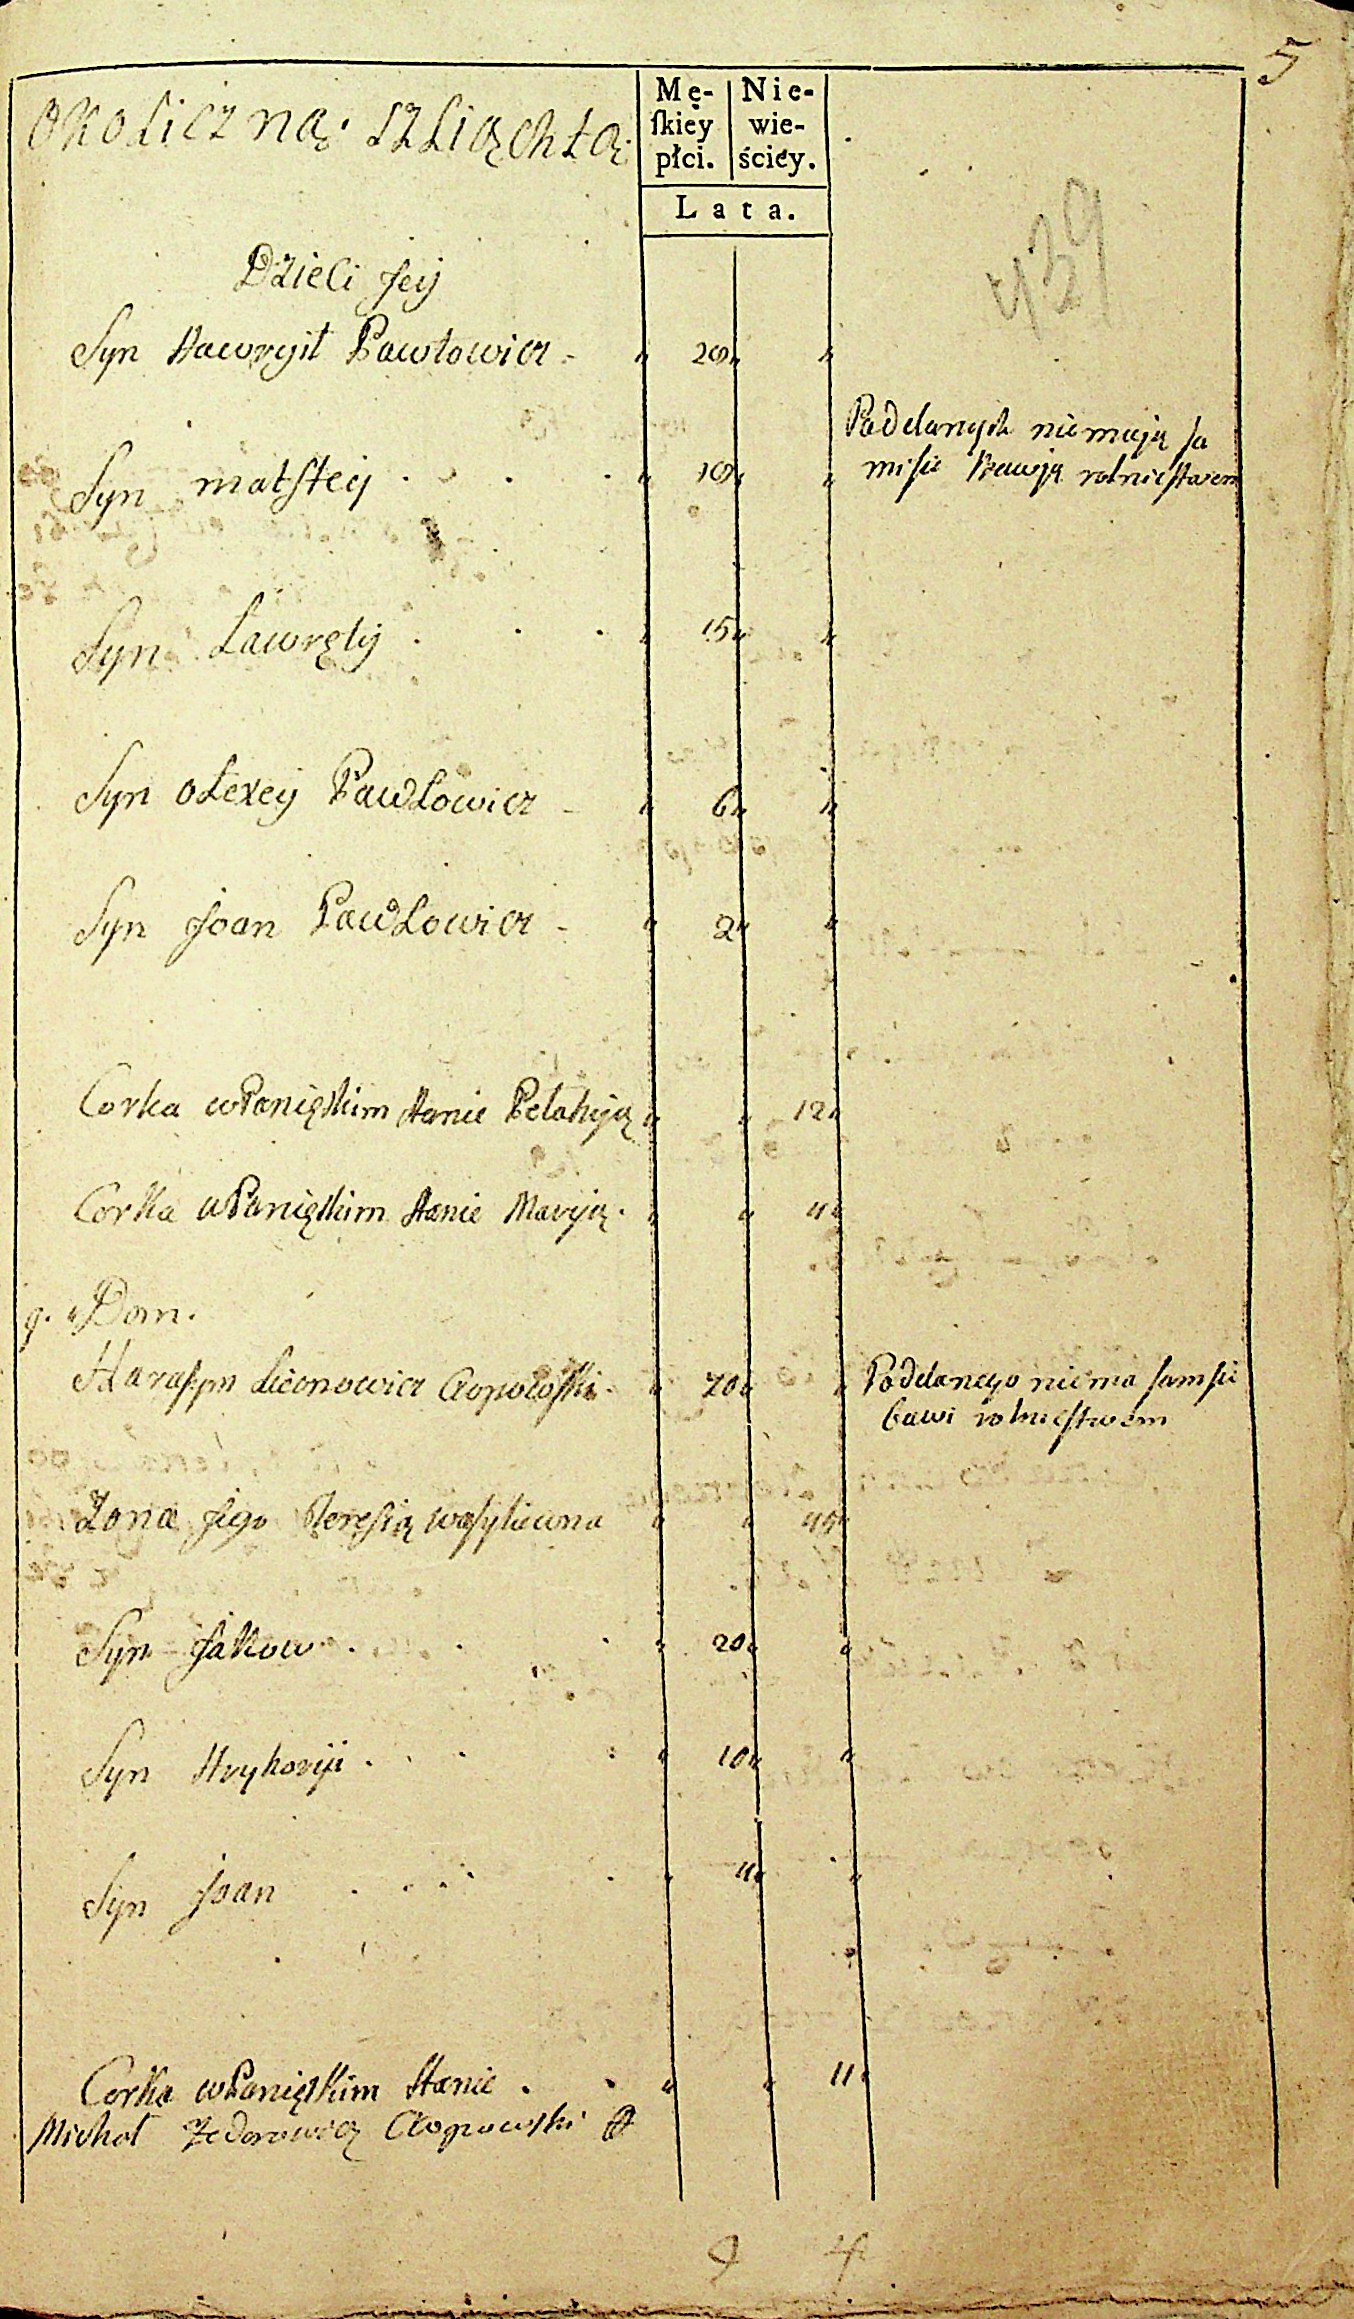 5
okoliczną szliąchtą
Mę-
ſkiey
płci.
Nie-
wie-
ściey.
Lata.
439
Dzieci Jey
Syn Hawryił Pawłowicz - " 20 " "
Poddanych niemają sa
misie bawją rolnictwem
Syn matſtey . . . " 19 " "
Syn Ławręty . . . " 15 " "
Syn olexey Pawłowicz - " 6 " "
Syn Joan Pawłowicz - " 2 " "
Corka wPanięſkim stanie Pelahyją " " 12 "
Corka wPanięſkim stanie Maryją . " " 4 "
9. " Dom.
Haraſym Lieonowicz Czopowſki - " 70 " "
Poddanego niema samsie
bawi rolnictwem
Żona Jego Teręsią wasyliewna " " 45 "
Syn Jakow . . . " 20 " "
Syn Hryhoryi . . . " 10 " "
Syn Joan . . . . " 4 " "
Corka wPanięſkim stanie . . " " 11 "
Michał Fedorowicz Czopowski
9 4